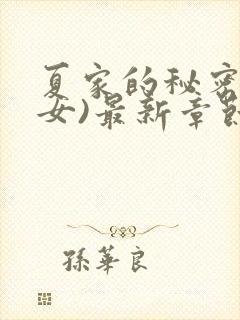 夏家的秘密
女)最新章節
孫華良